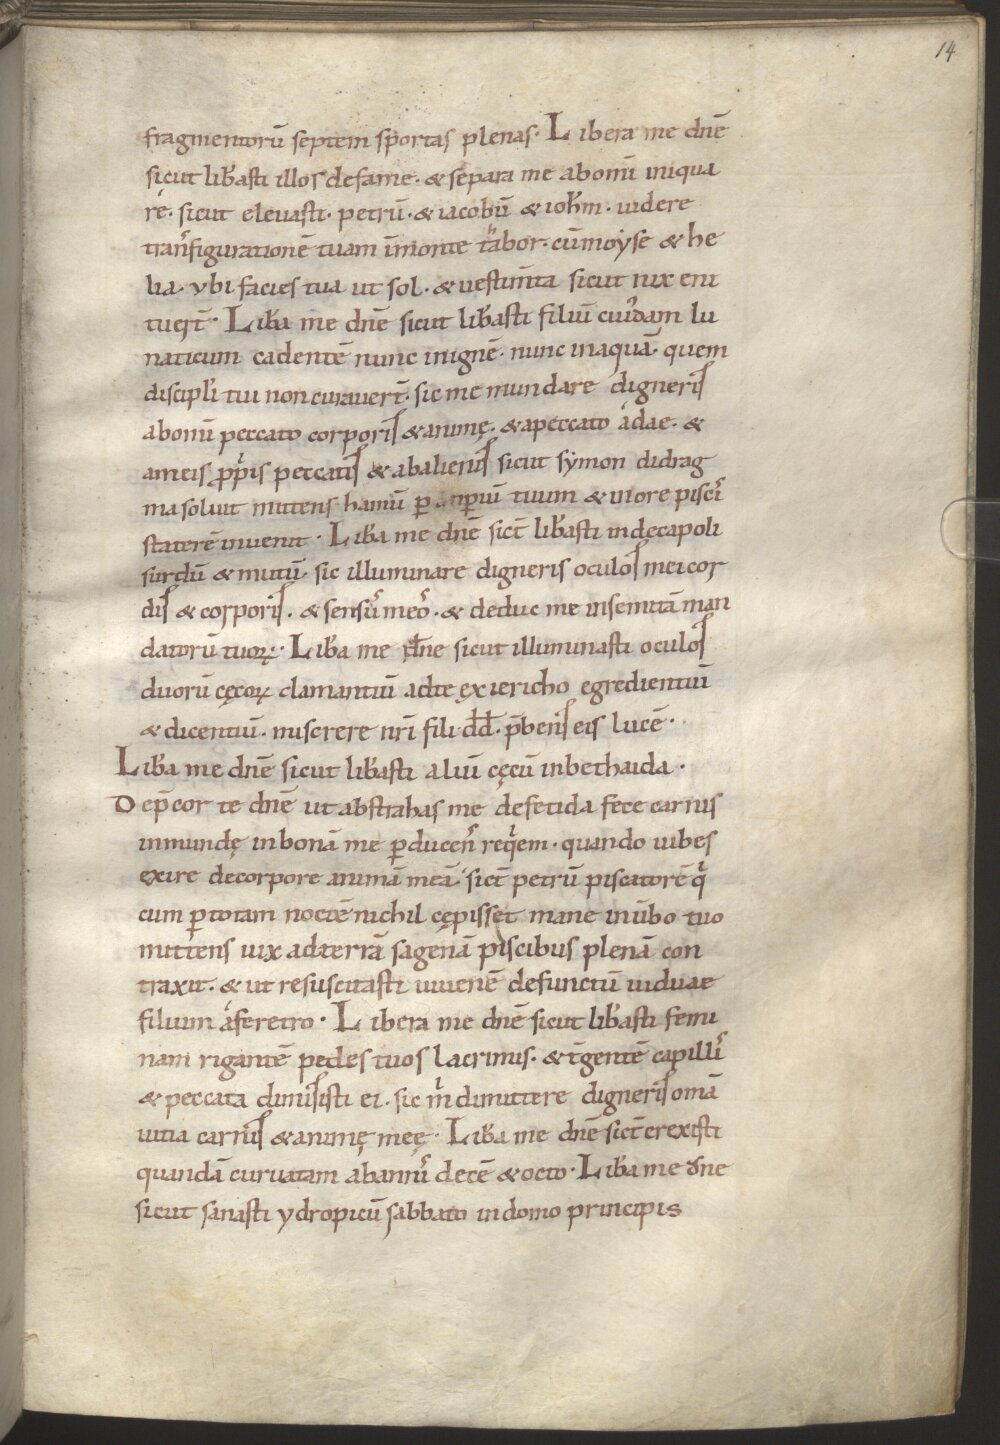 14
fragmentorū septem sportas plenas· Libera me dnē
sicut lib̄asti illos defame· & separa me abomī iniqua
re· sicut elevasti· petrū· & iacobū & ioh̄m· uidere
tranſfigurationē tuam īmonte tabor· cūmoyse & he
lia· ubi facies tua ut sol· & uestim̄ta sicut nix eni
tuer̄t· Lib̄a me dnē sicut lib̄asti filiū cuiꝰdam lu
naticum cadentē nunc inignē· nunc inaquā· quem
discipl̄i tui noncuraver̄t· sic me mundare digneris
abomī peccato corporis & animę· & apeccato adae· &
ameis p̄p̄is peccatis & abalienis sicut symon didrag
ma soluit mittens hamū ꝑ inp̄iū tuum & inore pisci
staterē inuenit· Lib̄a me dnē sic̄t lib̄asti indecapoli
surdū & mutū· sic illuminare digneris oculos mei cor
dis & corporis· & sensū meo· & deduc me insemitā man
datorū tuoꝝ· Lib̄a me dn̄e sicut illuminasti oculos
duorū cęcoꝝ clamantiū adte ęx iericho egredientiū
& dicentiū· miserere nr̄i fili dd̄· p̄bens eis lucē·
Lib̄a me dnē sicut lib̄asti aliū cęcū inbethaida·
Dep̄cor te dnē ut abstrahas me defetida fece carnis
inmundę inbonā me ꝑducens req̄em· quando iubes
exire decorpore animā meā· sic̄t petrū piscatorē q̄
cum ꝑtotam noctē nichil cępisset mane inūbo tuo
mittens uix adterrā sagenā piscibus plenā con
traxit· & ut resuscitasti iuvenē defunctū uiduae
filium aferetro· Libera me dnē sicut lib̄asti femi
nam rigantē pedes tuos lacrimis· & t̄gentē capilli
& peccata dimisisti ei· sic m̄ dimittere digneris omā
uitia carnis & animę meę· Lib̄a me dnē sic̄t erexisti
quandā curuatam abannis decē & octo· Lib̄a me dne
sicut sanasti ydropicū sabbato indomo principis